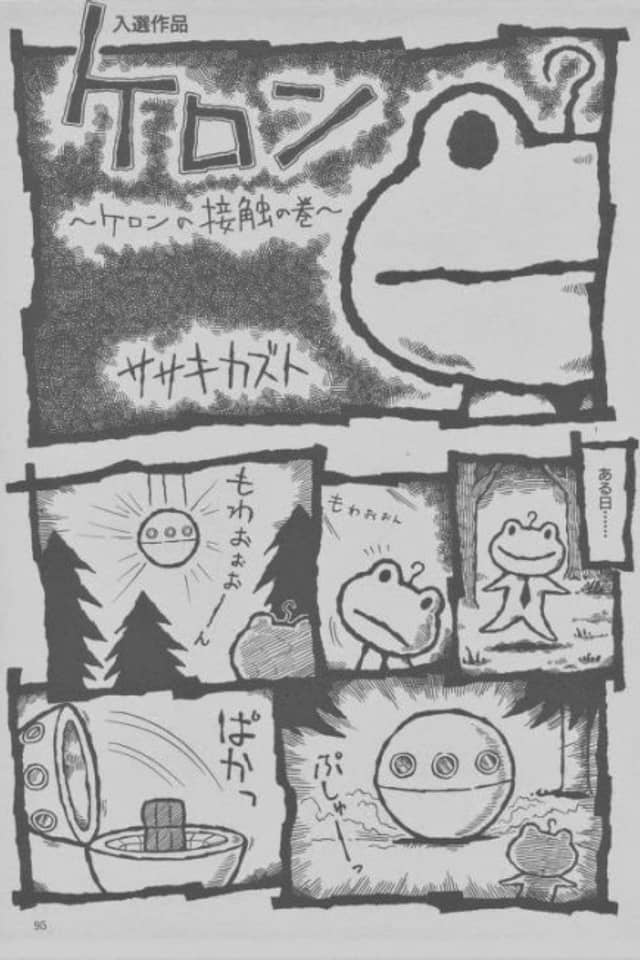 入選作品
ケロン
～ケロンの接触の巻～
ササキカズト
ある日……
もわおおん
もわおぉぉーん
ぷしゅーっ
ぱかっ
95